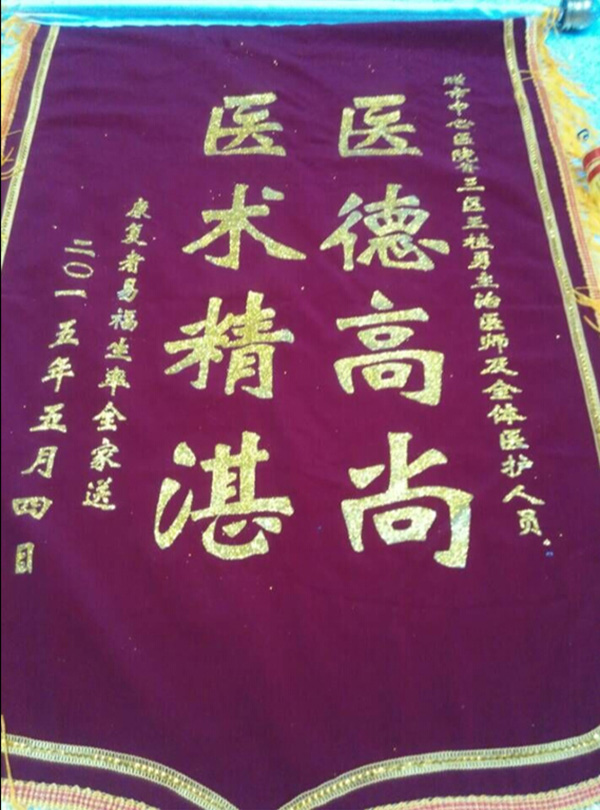 赠市中心医院介三区王祖勇主治医师及全体医护人员。
医德高尚
医术精湛
康复者易福生率全家送
二〇一五年五月四日